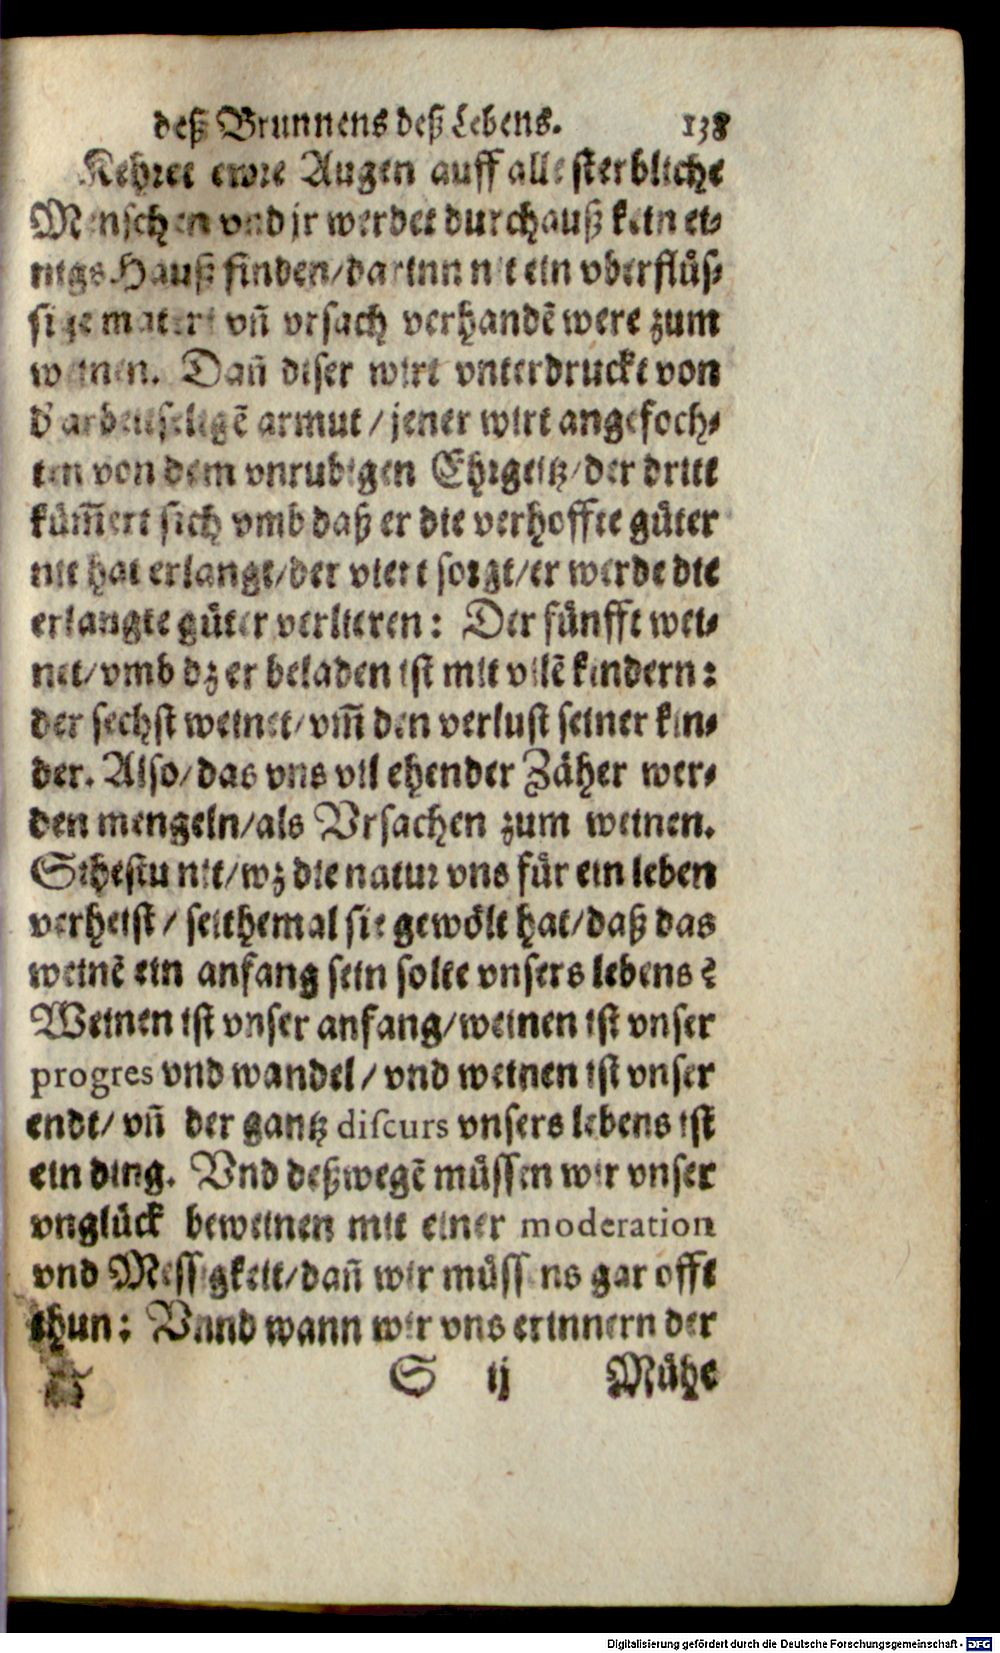 deß Brunnens deß Lebens. 138
Kehret ewre Augen auff alle sterbliche
Menschen vnd jr werdet durchauß kein ei⸗
nigs Hauß finden/darinn nit ein vberflüs⸗
sige materi vñ vrsach verhandē were zum
weinen. Dañ diser wirt vnterdruckt von
d' arbeitseligē armut / jener wirt angefoch⸗
ten von dem vnruhigen Ehrgeitz/der dritt
küm̃ert sich vmb daß er die verhoffte güter
nit hat erlangt/der viert sorgt/er werde die
erlangte güter verlieren: Der fünfft wei⸗
net/vmb dz er beladen ist mit vilē kindern:
der sechst weinet/vm̃ den verlust seiner kin⸗
der. Also/das vns vil ehender Zäher wer⸗
den mengeln/als Vrsachen zum weinen.
Sihestu nit/wz die natur vns für ein leben
verheist / seithemal sie gewölt hat/daß das
weinē ein anfang sein solte vnsers lebens?
Weinen ist vnser anfang/weinen ist vnser
progres vnd wandel / vnd weinen ist vnser
endt/ vñ der gantz discurs vnsers lebens ist
ein ding. Vnd deßwegē müssen wir vnser
vnglück beweinen mit einer moderation
vnd Messigkeit/dañ wir müssens gar offt
thun: Vnnd wann wir vns erinnern der
S ij Mühe
Digitalisierung gefördert durch die Deutsche Forschungsgemeinschaft - DFG